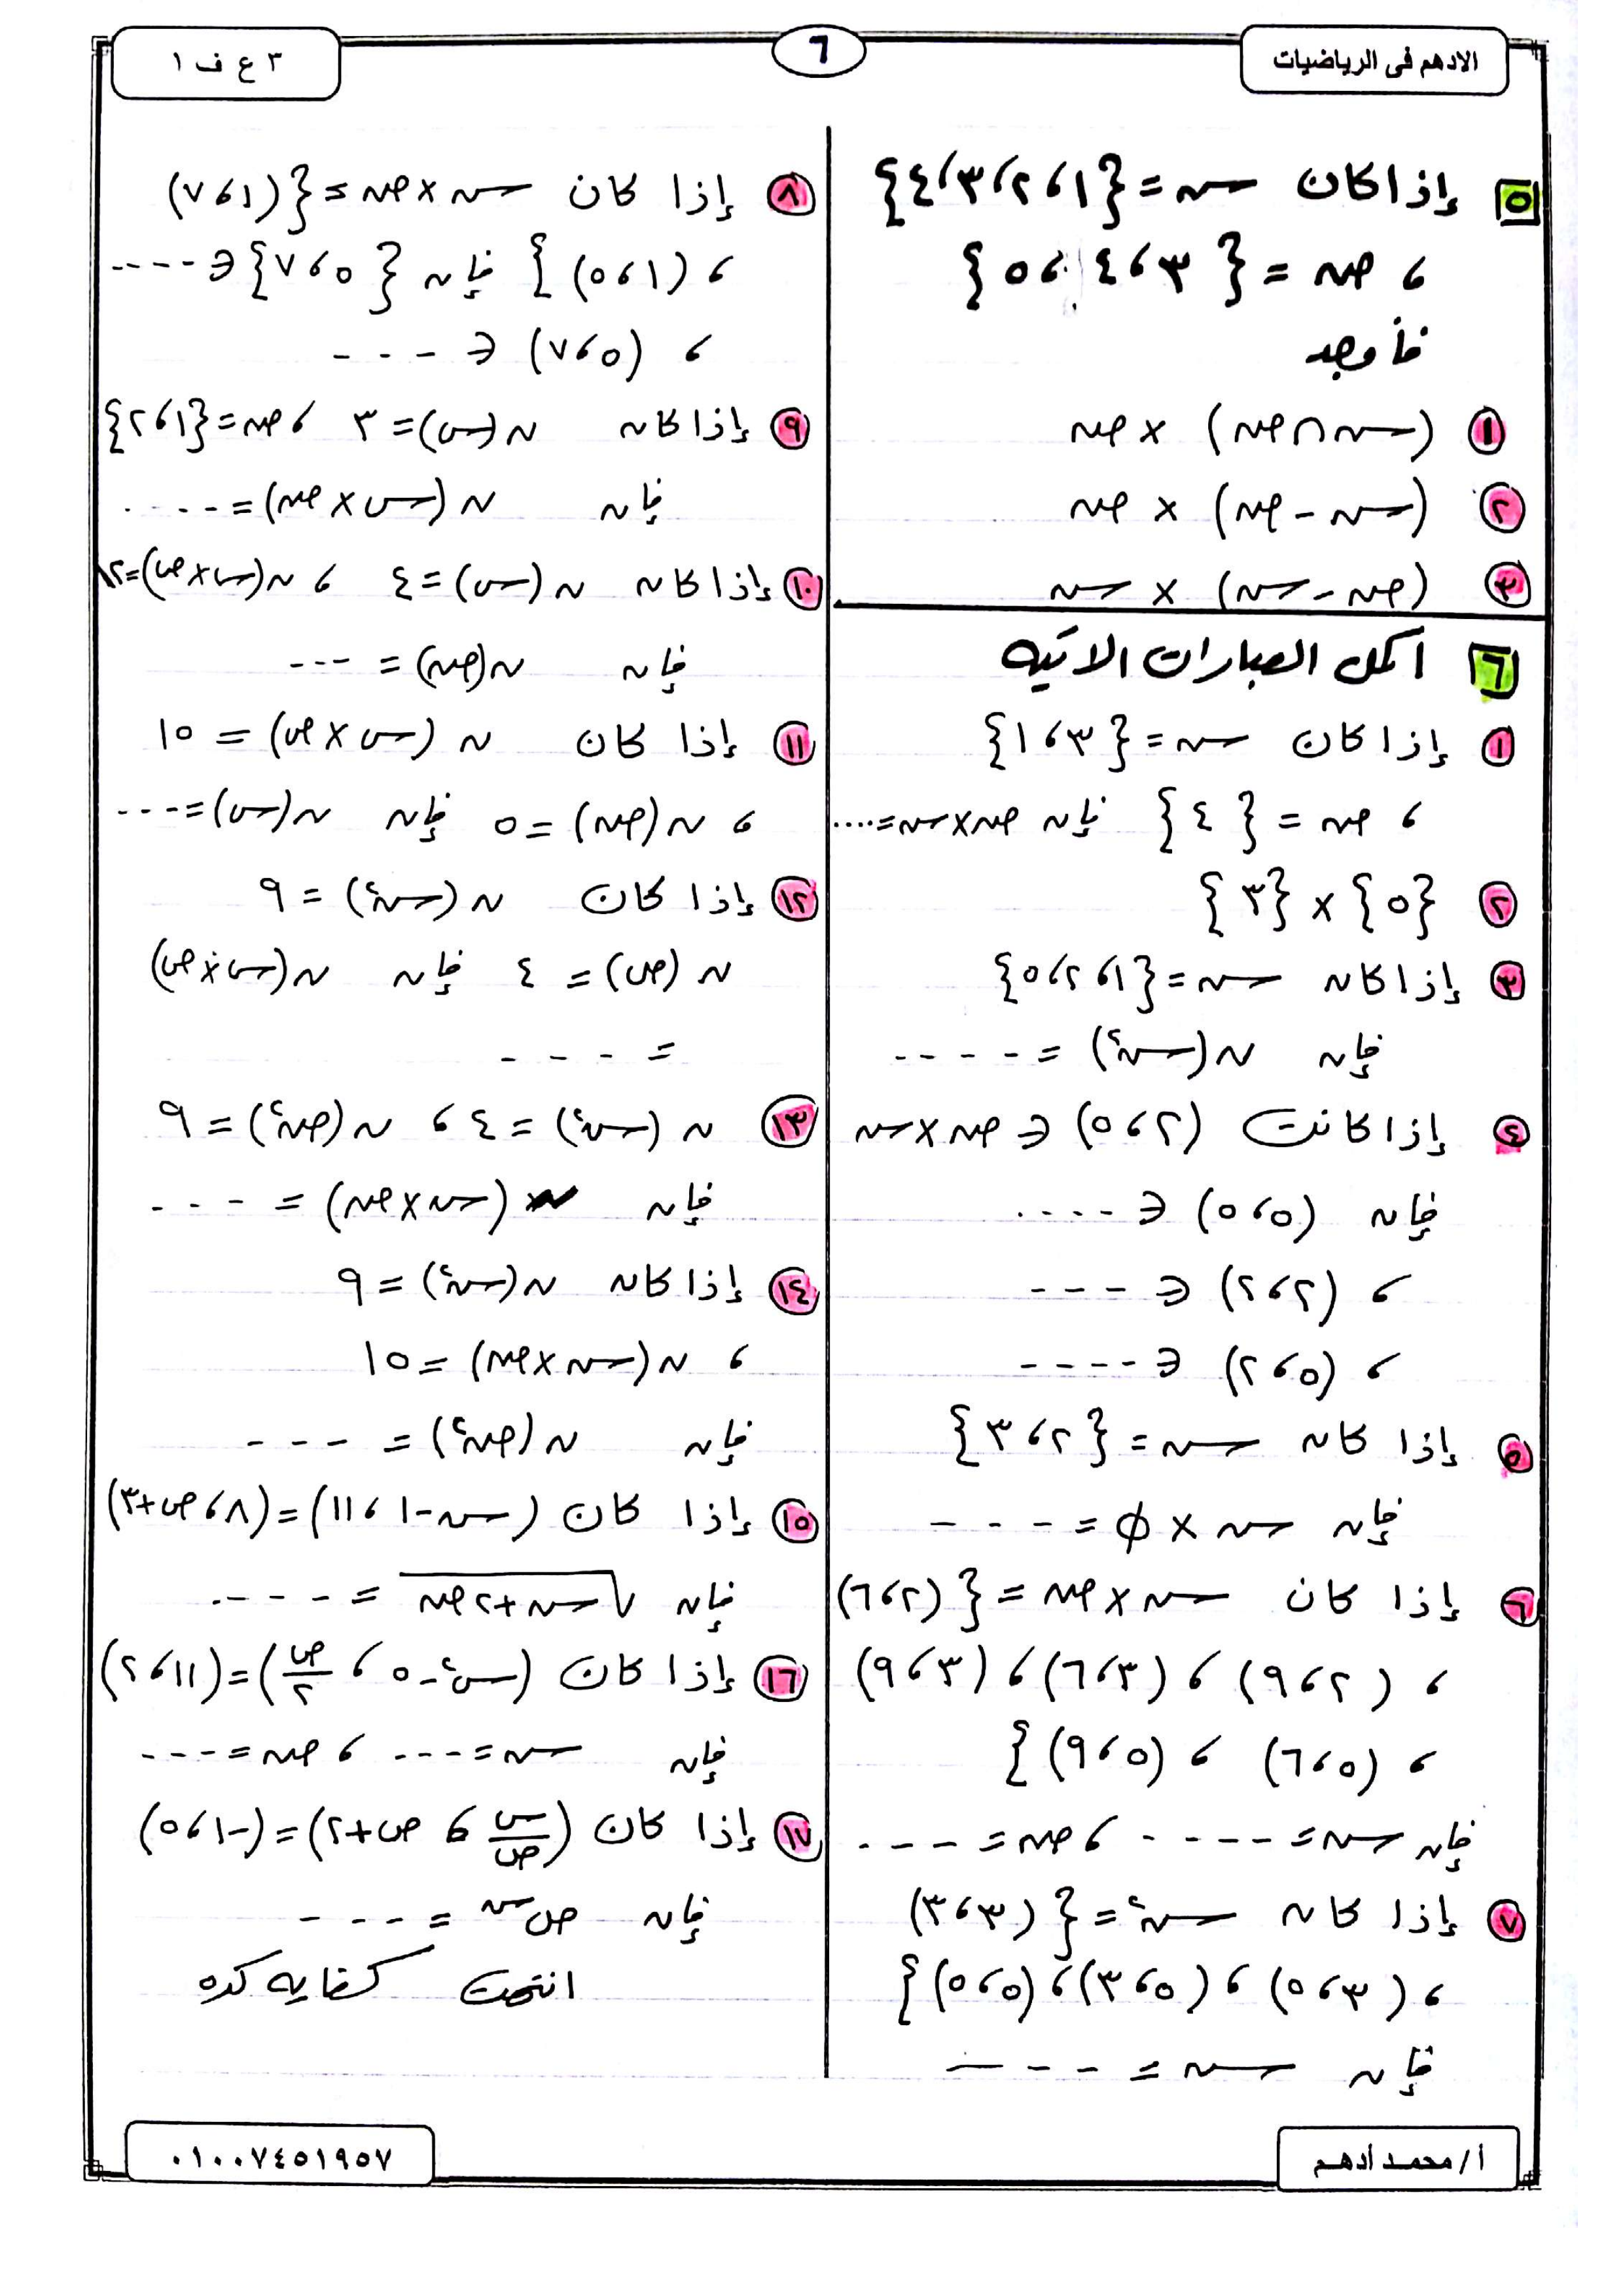 الادهم فى الرياضيات
٦
٣ ع ف ١
٥ إذا كان س = {١ ، ٢ ، ٣ ، ٤}
، ص = {٣ ، ٤ ، ٥}
فأوجد
١ (س ∩ ص) × ص
٢ (س - ص) × ص
٣ (ص - س) × س
٦ أكمل العبارات الاتيه
١ إذا كان س = {٣ ، ١}
، ص = {٤} فإن ص × س = ....
٢ {٥} × {٣}
٣ إذا كان س = {١ ، ٢ ، ٥}
فإن ن (س٢) = ----
٤ إذا كانت (٢ ، ٥) ∈ ص × س
فإن (٥ ، ٥) ∈ ----
، (٢ ، ٢) ∈ ---
، (٥ ، ٢) ∈ ----
٥ إذا كان س = {٢ ، ٣}
فإن س × φ = ----
٦ إذا كان س × ص = {(٢ ، ٦)
، (٢ ، ٩) ، (٣ ، ٦) ، (٣ ، ٩)
، (٥ ، ٦) ، (٥ ، ٩)}
فإن س = ---- ، ص = ---
٧ إذا كان س٢ = {(٣ ، ٣)
، (٣ ، ٥) ، (٥ ، ٣) ، (٥ ، ٥)}
فإن س = ---
٨ إذا كان س × ص = {(١ ، ٧)
، (١ ، ٥)} فإن {٥ ، ٧} ∈ ----
، (٥ ، ٧) ∈ ---
٩ إذا كان ن (س) = ٣ ، ص = {١ ، ٢}
فإن ن (س × ص) = ----
١٠ إذا كان ن (س) = ٤ ، ن (س × ص) = ١٢
فإن ن (ص) = ---
١١ إذا كان ن (س × ص) = ١٥
، ن (ص) = ٥ فإن ن (س) = ---
١٢ إذا كان ن (س٢) = ٩
ن (ص) = ٤ فإن ن (س × ص)
= ----
١٣ ن (س٢) = ٤ ، ن (ص٢) = ٩
فإن ن (س × ص) = ---
١٤ إذا كان ن (س٢) = ٩
، ن (س × ص) = ١٥
فإن ن (ص٢) = ---
١٥ إذا كان (س - ١ ، ١١) = (٨ ، ص + ٣)
فإن √(س + ٢ص) = ----
١٦ إذا كان (س٢ - ٥ ، ص/٢) = (١١ ، ٢)
فإن س = --- ، ص = ---
١٧ إذا كان (س/ص ، ص + ٢) = (-١ ، ٥)
فإن ص^س = ---
انتهت كفايه كده
أ / محمد أدهم
٠١٠٠٧٤٥١٩٥٧